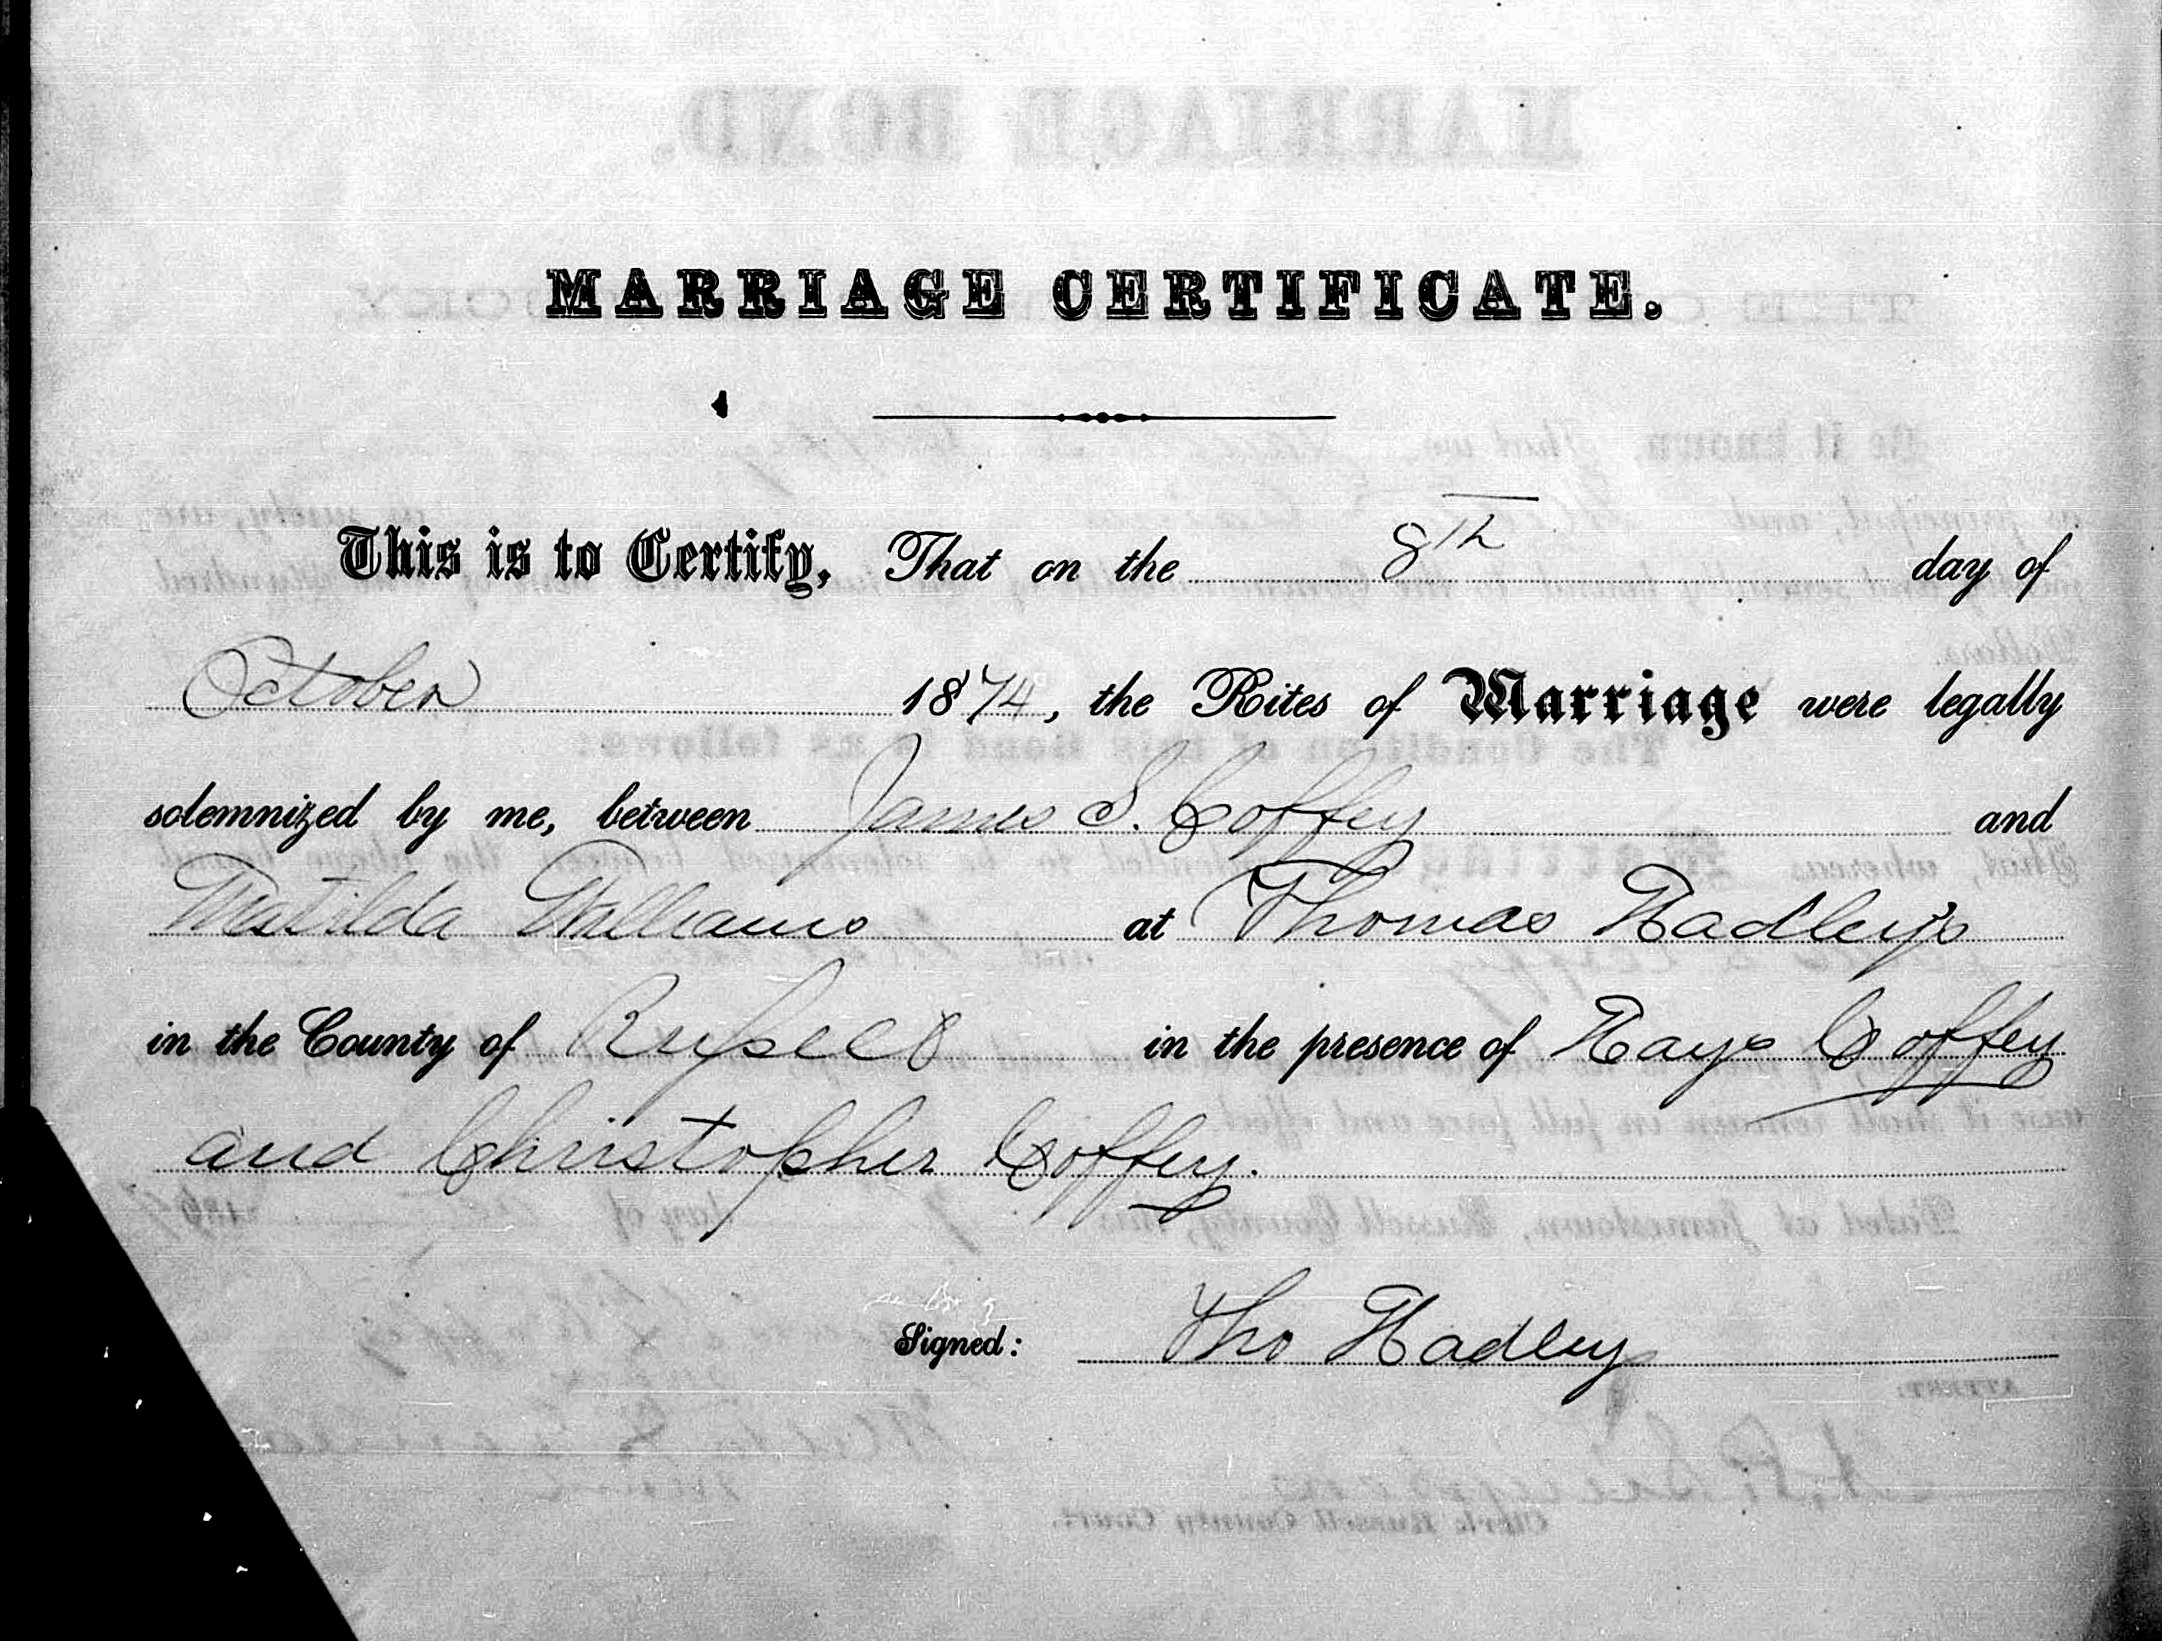 MARRIAGE BOND.
MARRIAGE CERTIFICATE.
This is to Certify, That on the 8th day of
October 1874, the Rites of Marriage were legally
solemnized by me, between James S. Coffey and
Matilda Williams at Thomas Hadley's
in the County of Russell in the presence of Hays Coffey
and Christopher Coffey.
Signed: Tho Hadley